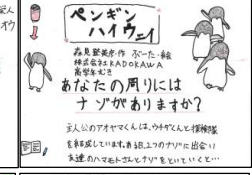 ペンギン
ハイウェイ
森見登美彦・作 ぶーた・絵
株式会社KADOKAWA
高学年むき
あなたの周りには
ナゾがありますか?
主人公のアオヤマくんは、ウチダくんと探検隊
を結成しています。ある日、2つのナゾに出会い
友達のハマモトさんとナゾをといていくと…